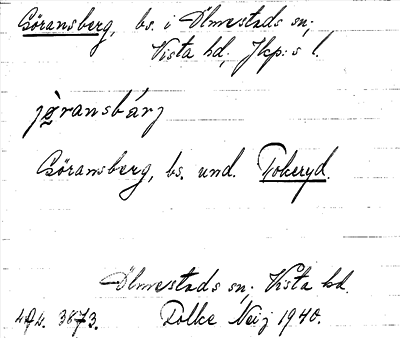 Göransberg, bs. i Ölmestads sn;
Vista hd, Jkp:s l.
jö̀ransbárj
Göransberg, bs. und. Tokeryd.
Ölmestads sn, Vista hd.
Folke Neij 1940.